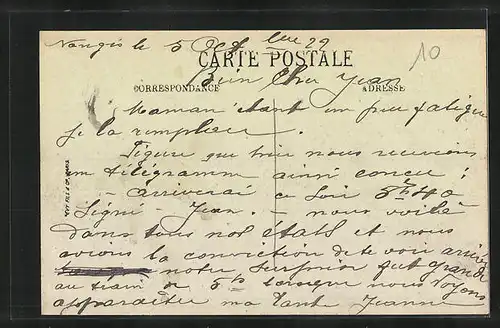 Nangis le 5 Oct bre 29
10
CARTE POSTALE
Bien Cher Jean
CORRESPONDANCE
ADRESSE
Maman étant un peu fatiguée
je la remplace.
Figure que hier nous recevions
un télégramme ainsi conçu :
- arriverai ce soir 5h40
Signé Jean. - nous voilà
dans tous nos états et nous
avions la conviction de te voir arriver
notre surprise fut grande
au train de 5h lorsque nous voyons
apparaître ma tante Jeanne